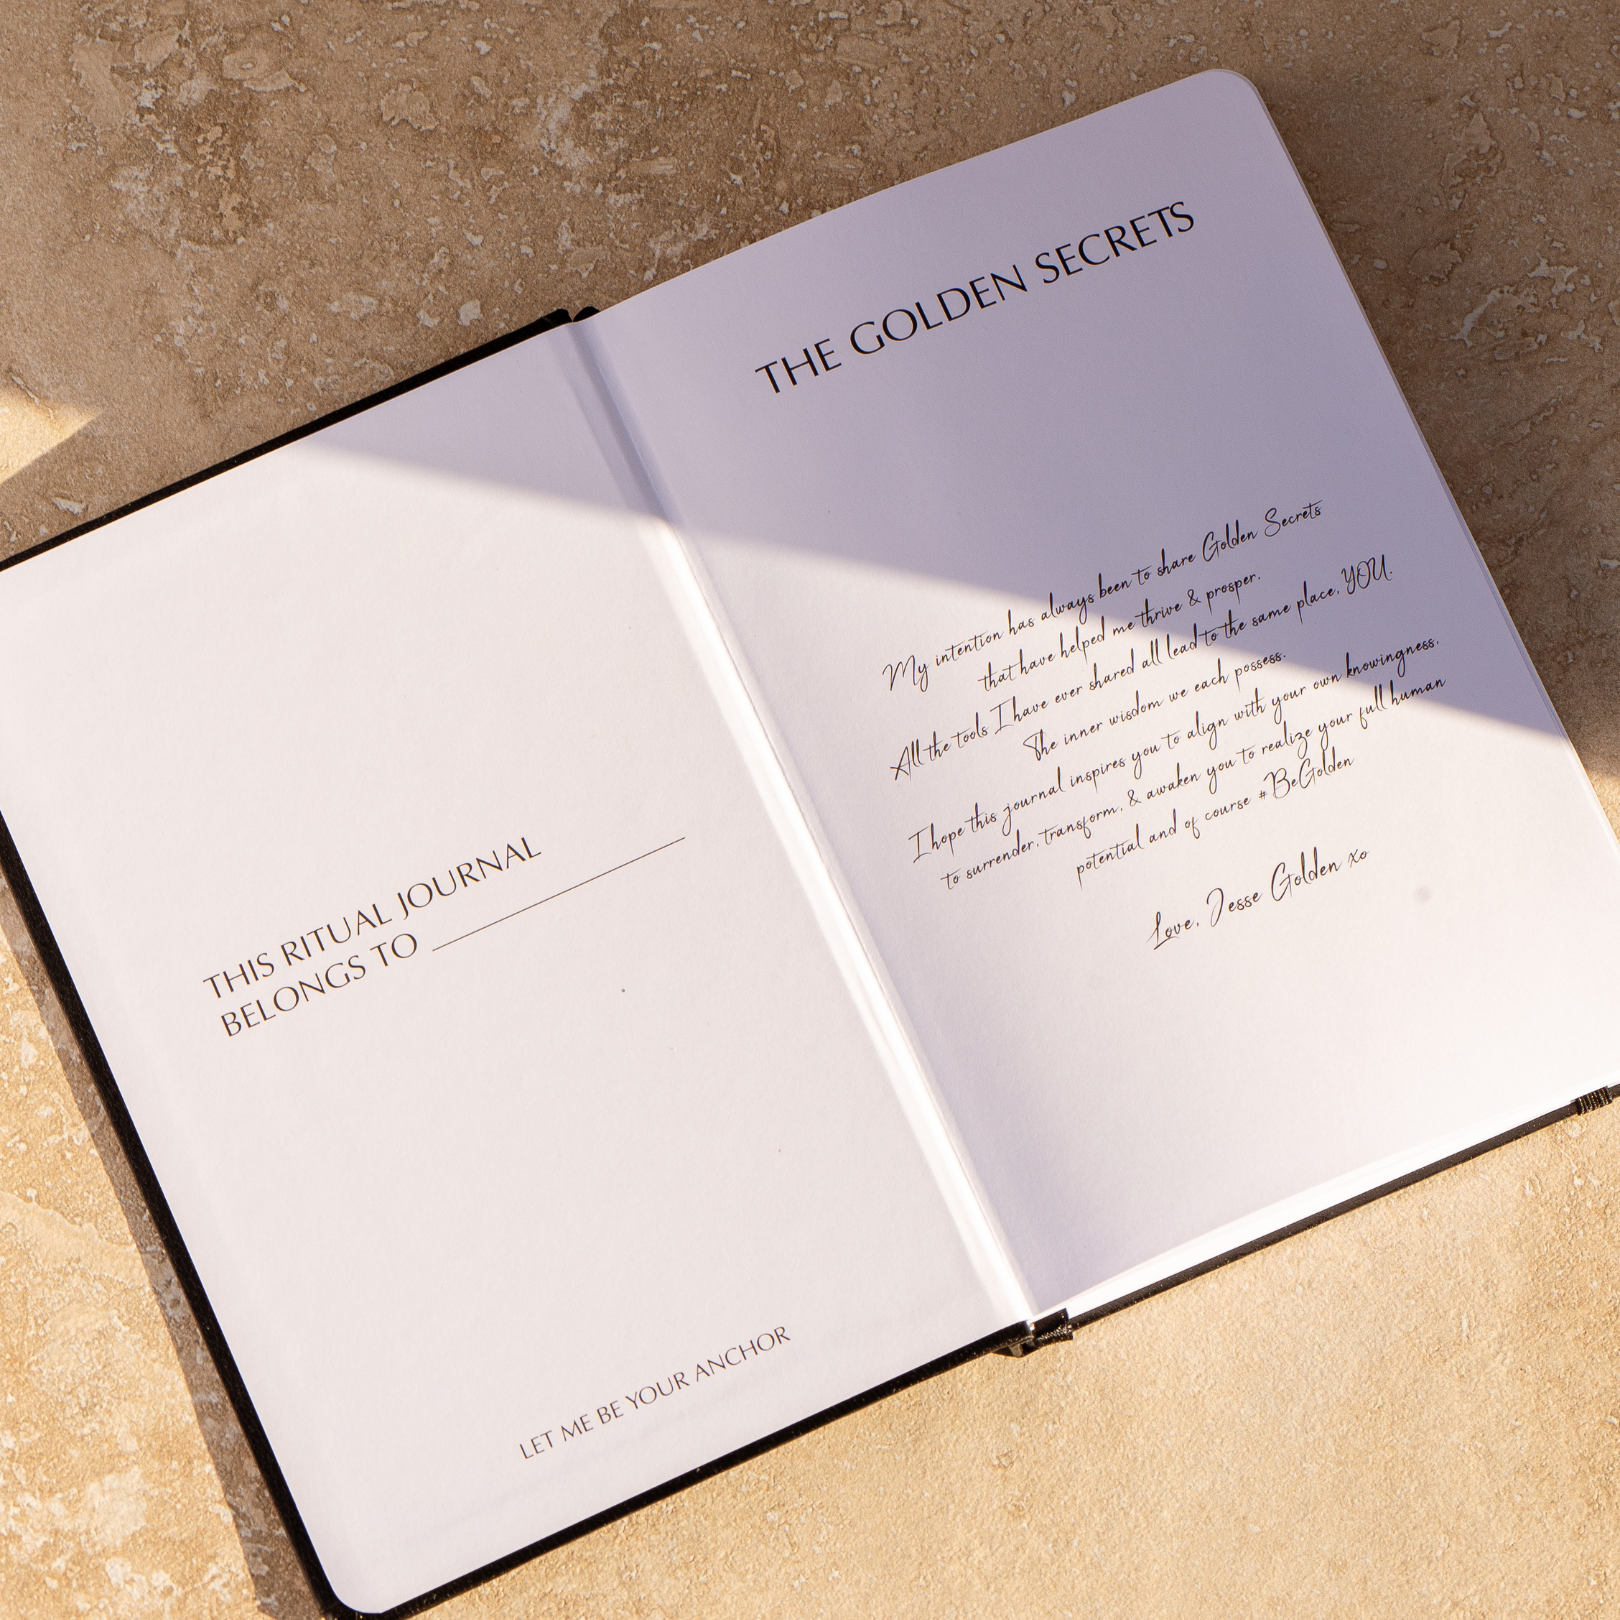 THIS RITUAL JOURNAL
BELONGS TO
LET ME BE YOUR ANCHOR
THE GOLDEN SECRETS
My intention has always been to share Golden Secrets
that have helped me thrive & prosper.
All the tools I have ever shared all lead to the same place, YOU.
The inner wisdom we each possess.
I hope this journal inspires you to align with your own knowingness,
to surrender, transform, & awaken you to realize your full human
potential and of course #BeGolden
Love, Jesse Golden xo